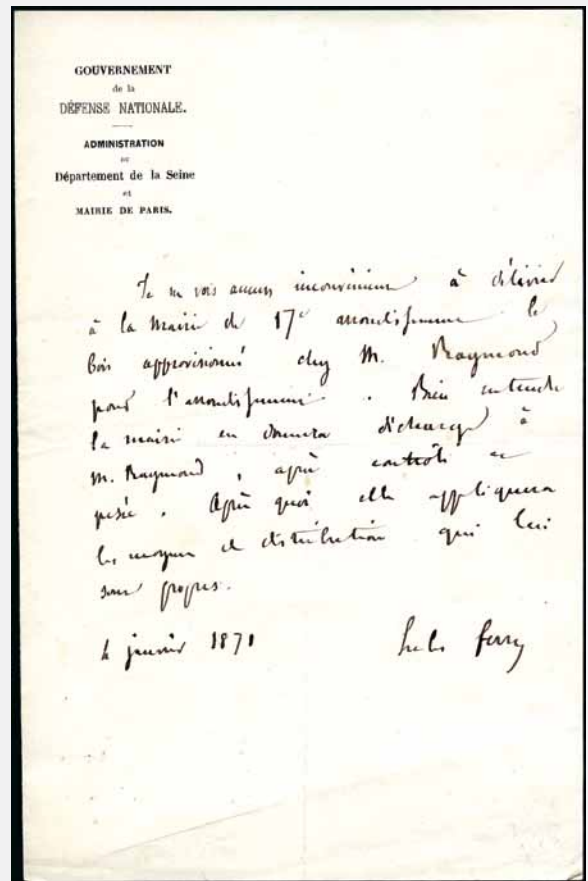 GOUVERNEMENT
de la
DÉFENSE NATIONALE.
ADMINISTRATION
DU
Département de la Seine
et
MAIRIE DE PARIS.
Je ne vois aucun inconvénient à délivrer
à la mairie du 17e arrondissement le
bois approvisionné chez M. Raymond
pour l'arrondissement. Bien entendu
la mairie en donnera décharge à
M. Raymond, après contrôle et
pesée. Après quoi elle appliquera
les moyens de distribution qui lui
sont propres.
4 janvier 1871
Jules Ferry